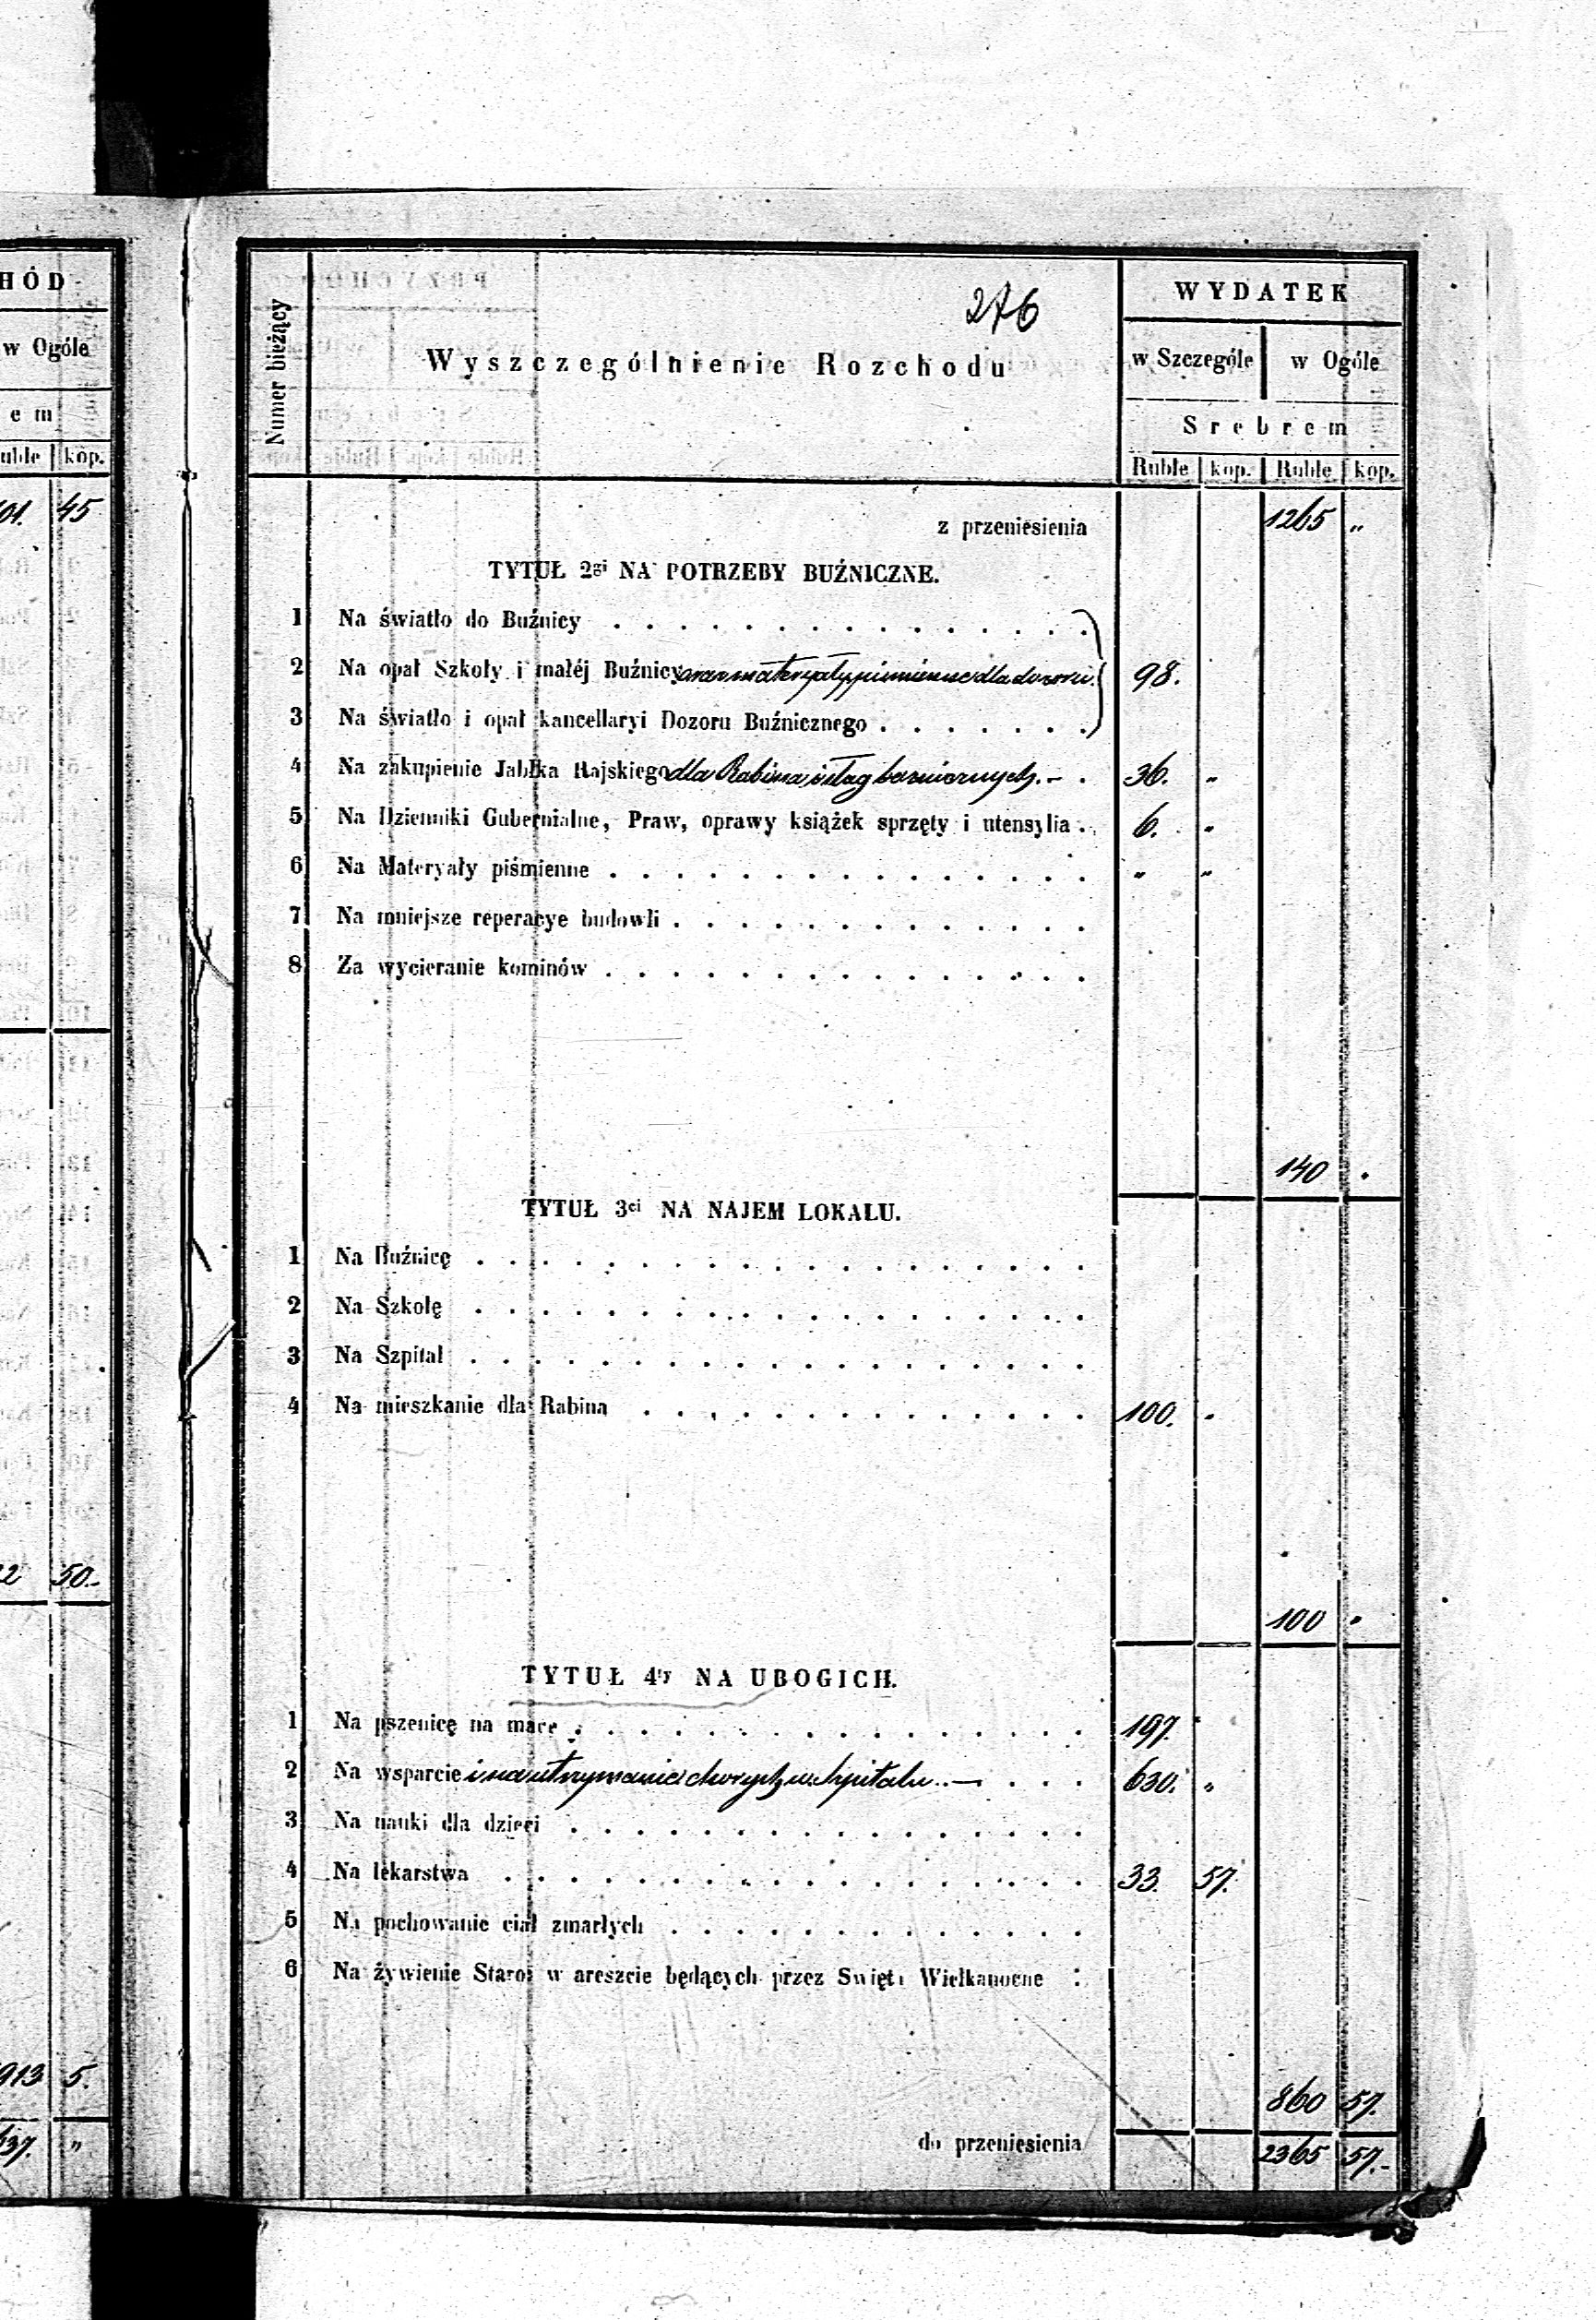 HÓD
w Ogóle
e m
uble kop.
01. 45
2 50.-
913 5.
637. "
276
Numer bieżący
Wyszczególnienie Rozchodu
WYDATEK
w Szczególe w Ogóle
Srebrem
Ruble kop. Ruble kop.
z przeniesienia 1265 "
TYTUŁ 2gi NA POTRZEBY BUŹNICZNE.
1 Na światło do Buźnicy
2 Na opał Szkoły i małéj Buźnicy oraz materyały piśmienne dla dozoru. 98.
3 Na światło i opał kancellaryi Dozoru Buźnicznego
4 Na zakupienie Jabłka Rajskiego dla Rabina i sług bożnicznych.- 36. "
5 Na Dzienniki Gubernialne, Praw, oprawy książek sprzęty i utensylia 6. "
6 Na Materyały piśmienne " "
7 Na mniejsze reperacye budowli
8 Za wycieranie kominów
140 "
TYTUŁ 3ci NA NAJEM LOKALU.
1 Na Buźnicę
2 Na Szkołę
3 Na Szpital
4 Na mieszkanie dla Rabina 100. "
100 "
TYTUŁ 4ty NA UBOGICH.
1 Na pszenicę na mace 197. "
2 Na wsparcie i na utrzymania chorych w Szpitalu.- 630. "
3 Na nauki dla dzieci
4 Na lekarstwa 33. 57.
5 Na pochowanie ciał zmarłych
6 Na żywienie Staroz w areszcie będących przez Święta Wielkanocne
860 57.
do przeniesienia 2365 57.-